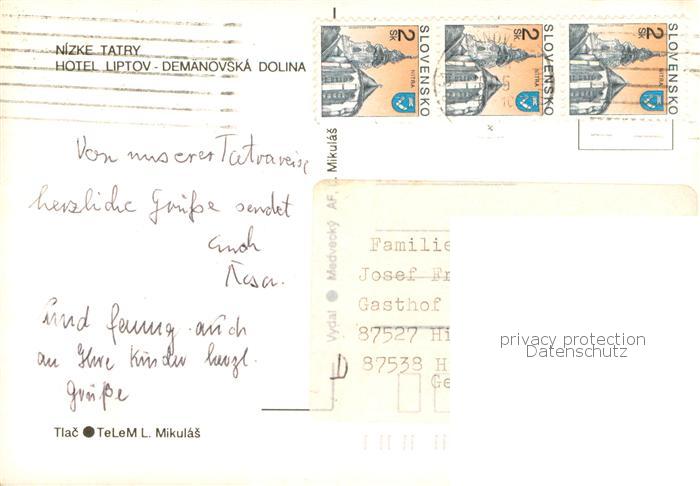 NÍZKE TATRY
HOTEL LIPTOV - DEMANOVSKÁ DOLINA
SLOVENSKO
2 SK
NITRA
SLOVENSKO
2 SK
NITRA
SLOVENSKO
2 SK
NITRA
Von unserer Tatrareise
herzliche Grüße sendet
Euch
Und
auch
an Ihre Kinder herzl.
Grüße
Vydal Medvecký AF, L. Mikuláš
Familie
Josef Fr
Gasthof
87527 Hi
87538 H
Ge
D
privacy protection
Datenschutz
Tlač TeLeM L. Mikuláš